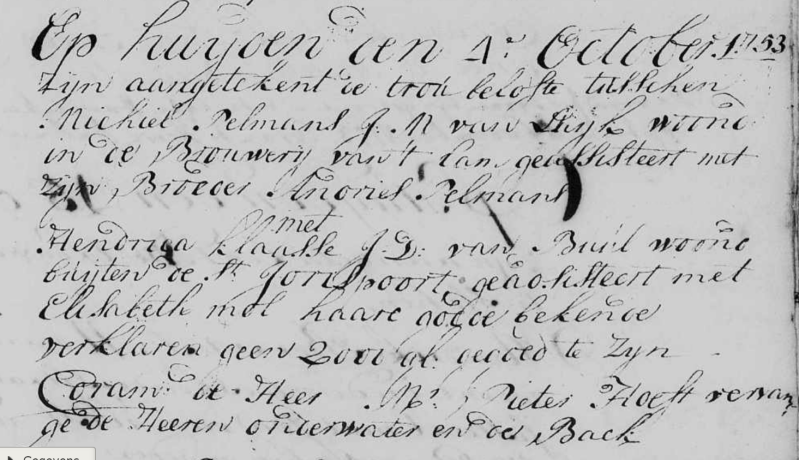 Op huijden den 4e October. 1753
Zijn aangetekent de trou belofte tusschen
Michiel Pelmans J. M van woond
in de Brouwerij van't Lam geassisteert met
Zijn Broeder Andries Pelmans
met
Hendrica Klaasse J. D. van Buul woond
buijten de St Jorispoort, geadsisteert met
Elisabeth mol haare goede bekende
verklaren geen 2000 gl. gegoed te Zijn
Coram de Heer Mr Pieter Hoeft vervan
ge de Heeren onderwater en de Back
Gegevens